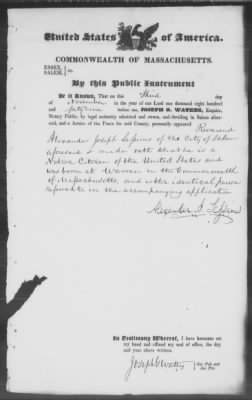 United States of America.
COMMONWEALTH OF MASSACHUSETTS.
ESSEX, } ss.
SALEM,
By this Public Instrument
Be it Known, That on this Third day
of November in the year of our Lord one thousand eight hundred
and before me, JOSEPH G. WATERS, Esquire,
Notary Public, by legal authority admitted and sworn, and dwelling in Salem afore-
said, and a Justice of the Peace for said County, personally appeared
Reverend
Alexander Joseph of the City of Salem
aforesaid & made oath that he is a
Native Citizen of the United States and
was born at Warren in the Commonwealth
of Massachusetts, and is the identical person
referred to in the accompanying application
Alexander J.
In Testimony Whereof, I have hereunto set
my hand and affixed my seal of office, the day
and year above written.
Joseph G Waters { Not. Pub. and
Jus. Pac.